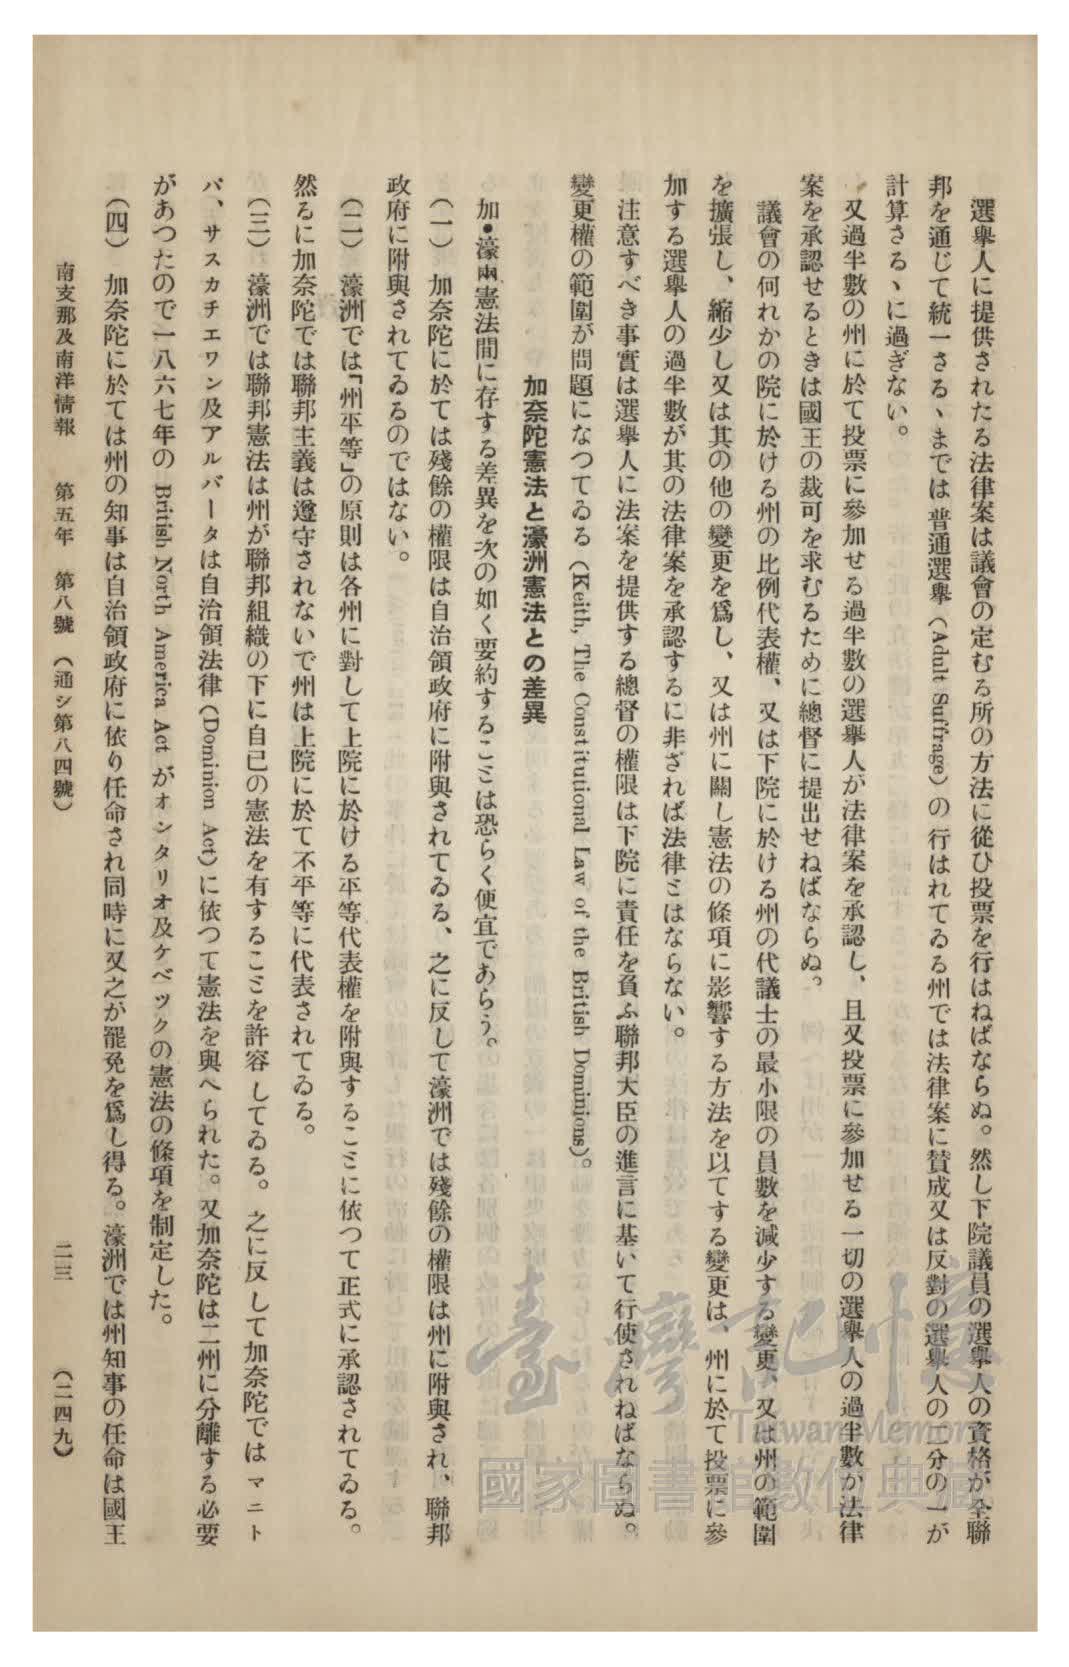 選擧人に提供されたる法律案は議會の定むる所の方法に從ひ投票を行はねばならぬ。然し下院議員の選擧人の資格が全聯
邦を通じて統一さるヽまでは普通選擧(Adult Suffrage)の行はれてゐる州では法律案に賛成又は反對の選擧人の二分の一が
計算さるヽに過ぎない。
又過半數の州に於て投票に參加せる過半數の選擧人が法律案を承認し、且又投票に參加せる一切の選擧人の過半數が法律
案を承認せるときは國王の裁可を求むるために總督に提出せねばならぬ。
議會の何れかの院に於ける州の比例代表權、又は下院に於ける州の代議士の最小限の員數を減少する變更、又は州の範圍
を擴張し、縮少し又は其の他の變更を爲し、又は州に關し憲法の條項に影響する方法を以てする變更は、州に於て投票に參
加する選擧人の過半數が其の法律案を承認するに非ざれば法律とはならない。
注意すべき事實は選擧人に法案を提供する總督の權限は下院に責任を負ふ聯邦大臣の進言に基いて行使されねばならぬ。
變更權の範圍が問題になつてゐる(Keith, The Constitutional Law of the British Dominions)。
加奈陀憲法と濠洲憲法との差異
加●濠兩憲法間に存する差異を次の如く要約することは恐らく便宜であらう。
(一) 加奈陀に於ては殘餘の權限は自治領政府に附與されてゐる、之に反して濠洲では殘餘の權限は州に附與され、聯邦
政府に附與されてゐるのではない。
(二) 濠洲では「州平等」の原則は各州に對して上院に於ける平等代表權を附與することに依つて正式に承認されてゐる。
然るに加奈陀では聯邦主義は遵守されないで州は上院に於て不平等に代表されてゐる。
(三) 濠洲では聯邦憲法は州が聯邦組織の下に自己の憲法を有することを許容してゐる。之に反して加奈陀ではマニト
バ、サスカチエワン及アルバータは自治領法律(Dominion Act)に依つて憲法を與へられた。又加奈陀は二州に分離する必要
があつたので一八六七年の British North America Act がオンタリオ及ケベックの憲法の條項を制定した。
(四) 加奈陀に於ては州の知事は自治領政府に依り任命され同時に又之が罷免を爲し得る。濠洲では州知事の任命は國王
南支那及南洋情報 第五年 第八號 (通シ第八四號) 二三 (二四九)
臺灣記憶
Taiwan Memory
國家圖書館數位典藏